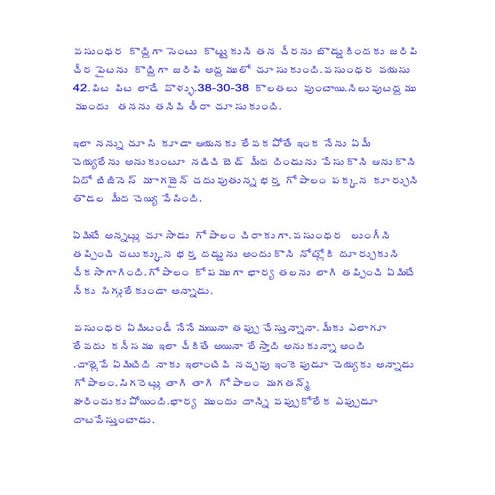 వసుంధర కొద్దిగా సెంటు కొట్టుకుని తన చీరను బొడ్డుకిందకు జరిపి
చీర పైటను కొద్దిగా జరిపి అద్దములో చూసుకుంది.వసుంధర వయసు
42.పిట పిట లాడే వొళ్ళు.38-30-38 కొలతలు వుంటాయి.నిలువుటద్దము
ముందు తనను తనివి తీరా చూసుకుంది.
ఇలా నన్ను చూసి కూడా ఆయనకు లేవకపోతే ఇంక నేను ఏమీ
చెయ్యలేను అనుకుంటూ నడిచి బెడ్ మీద దిండును వేసుకొని ఆనుకొని
ఏదో బిజినెస్ మాగజైన్ చదువుతున్న భర్త గోపాలం పక్కన కూర్చుని
తొడల మీద చెయ్యి వేసింది.
ఏమిటే అన్నట్లు చూసాడు గోపాలం చిరాకుగా.వసుంధర లుంగీని
తప్పించి చటుక్కున భర్త దడ్డును అందుకొని నోట్లోకి దూర్చుకుని
చీకసాగాగింది.గోపాలం కోపముగా భార్య తలను లాగి తప్పించి ఏమిటే
నీకు సిగ్గులేకుండా అన్నాడు.
వసుంధర ఏమిటండీ నేనేమయినా తప్పు చేస్తున్నానా. మీకు ఎలాగూ
లేవదు కనీసము ఇలా చీకితే అయినా లేస్తాది అనుకున్నా అంది
.చాల్లెవే ఏమిటిది నాకు ఇలాంటివి నచ్చవు ఇంకెపుడూ చెయ్యకు అన్నాడు
గోపాలం.సిగరెట్లు తాగి తాగి గోపాలం మగతన్మ్
హరించుకుపోయింది.భార్య ముందు దాన్ని వప్పుకోలేక ఎప్పుడూ
దాటవేస్తుంటాడు.